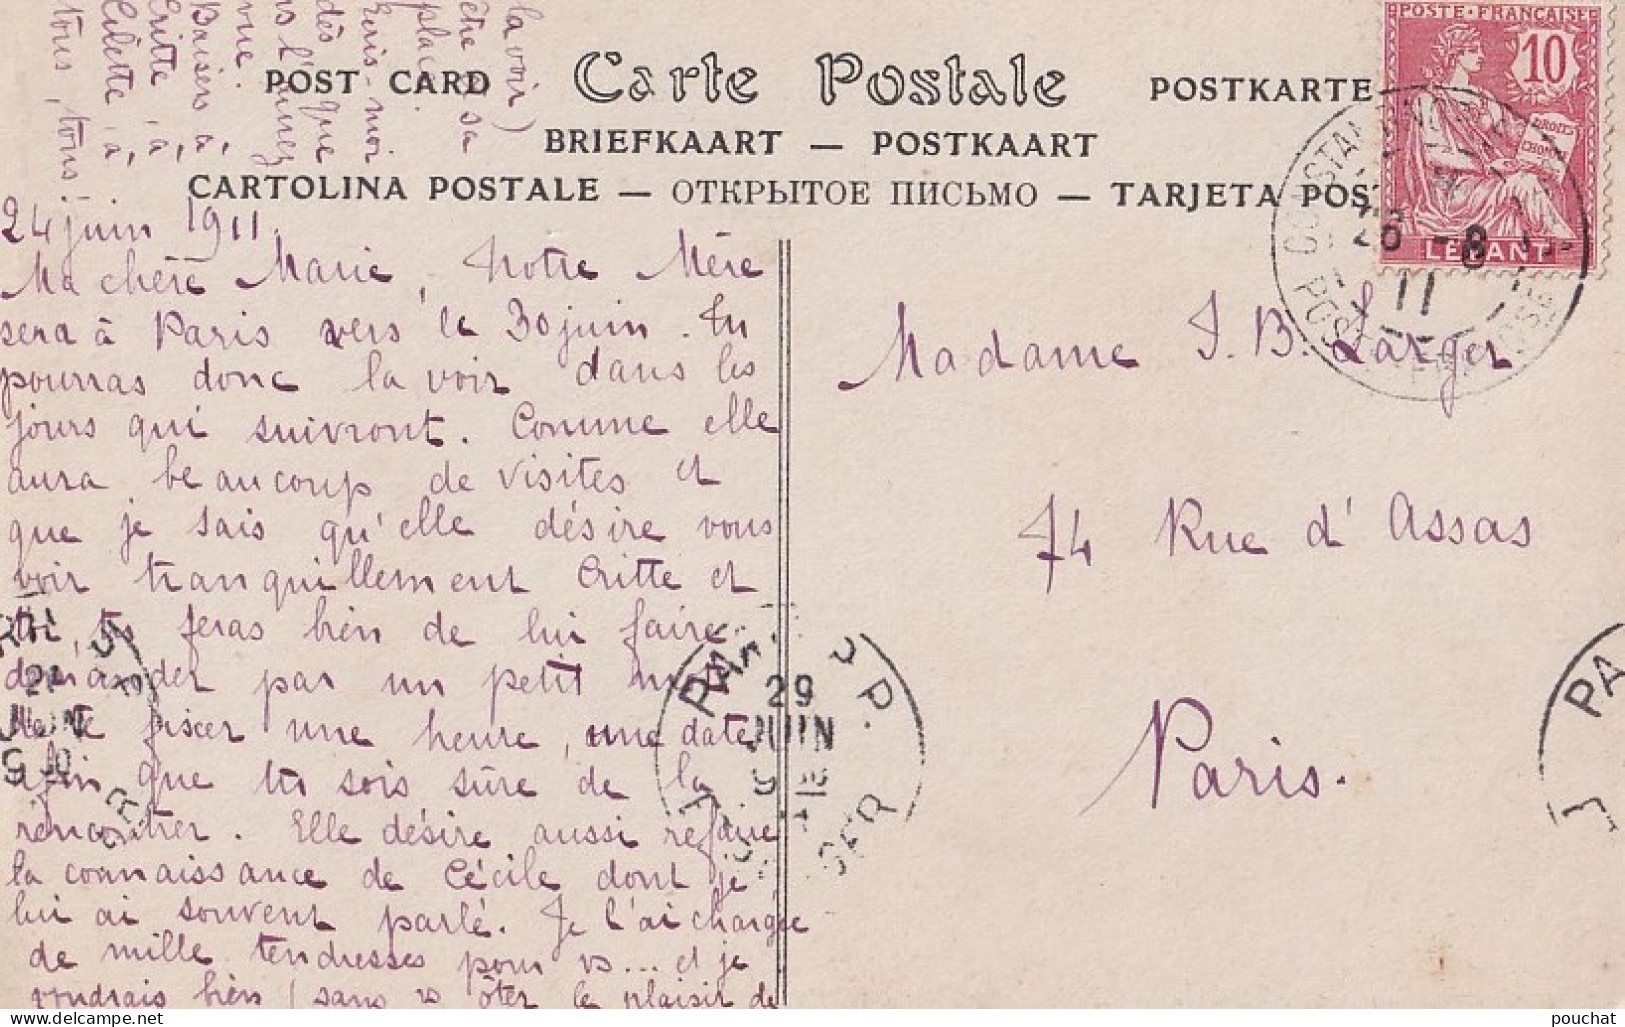 POST CARD Carte Postale POSTKARTE
BRIEFKAART — POSTKAART
CARTOLINA POSTALE — ОТКРЫТОЕ ПИСЬМО — TARJETA POST
POSTE·FRANÇAISE
10
DROITS
LEVANT
CONSTANTINOPLE
26 -6
11
24 juin 1911.
Ma chère Marie, Notre Mère
sera à Paris vers le 30 juin. Tu
pourras donc la voir dans les
jours qui suivront. Comme elle
aura beaucoup de visites et
que je sais qu'elle désire vous
voir tranquillement Critte et
toi, tu feras bien de lui faire
demander par un petit mot
de te fixer une heure, une date
afin que tu sois sûre de la
rencontrer. Elle désire aussi refaire
la connaissance de Cécile dont je
lui ai souvent parlé. Je l'ai chargée
de mille tendresses pour vs... et je
voudrais bien (sans vs ôter le plaisir de
la voir)
être à sa
place
Ecris-moi
dès que
vs l'aurez
vue.
Baisers à
Critte, à
Cilette, à
tous, tous.
Madame J. B. Larger
74 Rue d'Assas
Paris.
PARIS
29
JUIN
DISTR
PA
pouchat